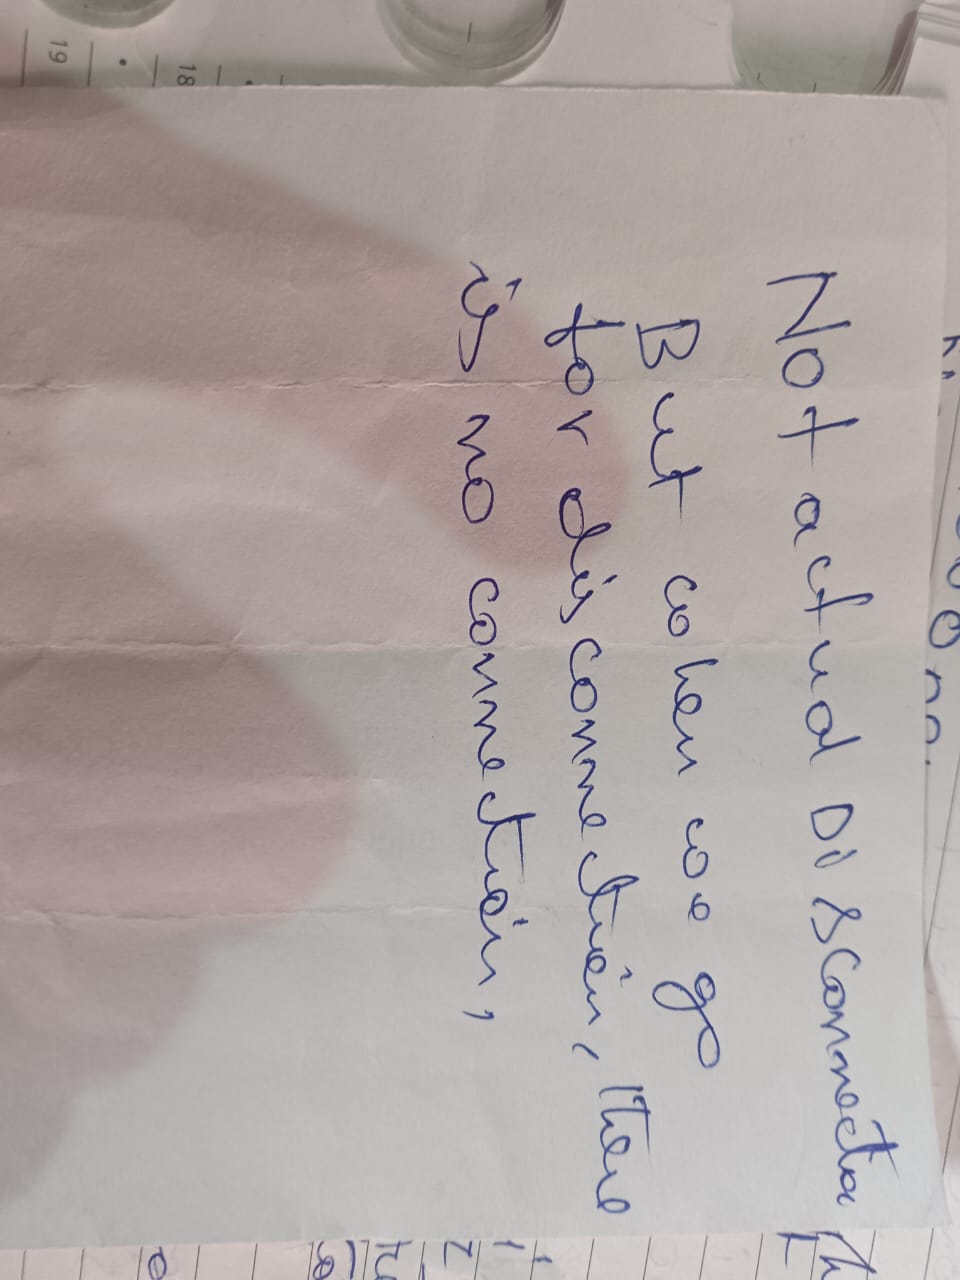 Not actual Disconnecta
But when we go
for disconnection, there
is no connection,
19
18